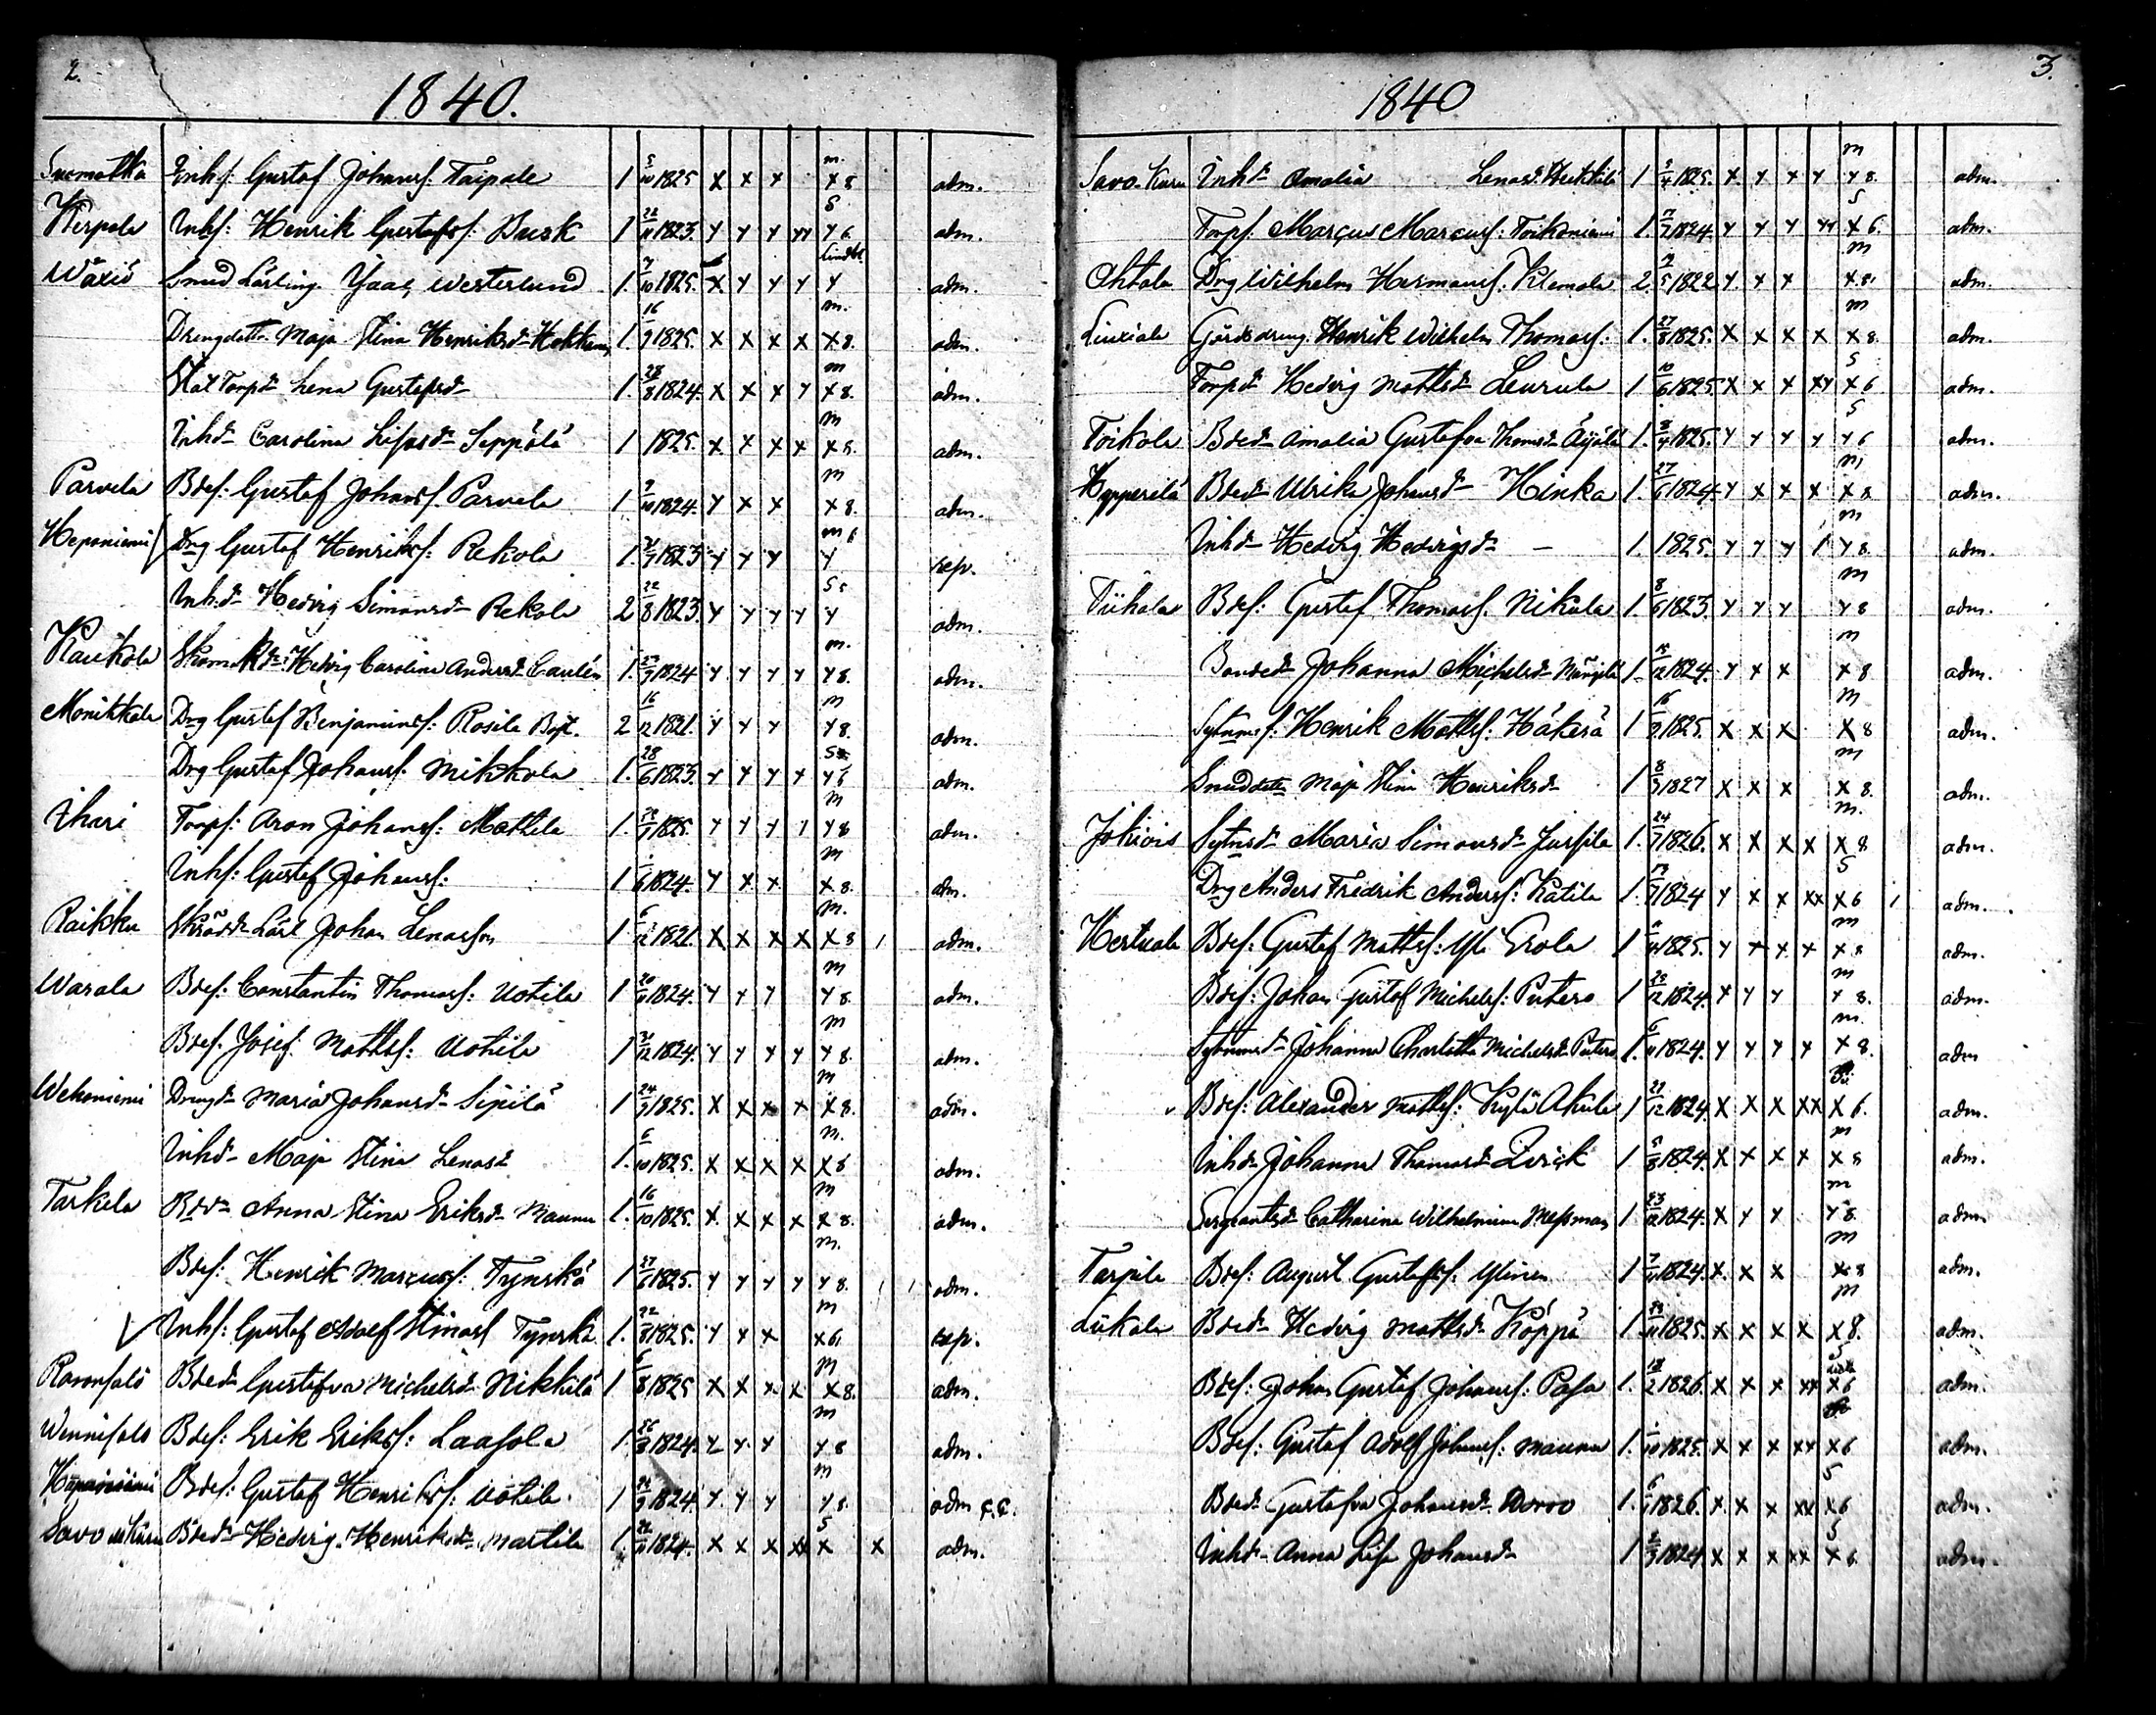 2.
1840.
Suomatka Inhs: Gustaf Johans: Taipale 1 5/10 1825 x x x m. x 8 adm.
Kerpola Inhs: Henrik Gustafs: Busk 1 22/11 1823. y y y yy S y 6 adm.
Wäxiö Smed Lärling Isaac Westerlund 1. 7/10 1825. x y y y y adm.
Drengdottr Maja Stina Henriksdr 1. 16/9 1825. x x x x m. x 8. adm.
Stat Torpdr Lena Gustafsdr 1. 28/8 1824. x x x y m x 8. adm.
Inhdr Carolina Lisasdr Seppälä 1 1825. x x x x m x 8. adm.
Parvela Bdes: Gustaf Johans: Parvela 1 9/10 1824. y x x m x 8. adm.
Heponiemi Drg Gustaf Henriks: Rekola 1. 21/9 1823 y y y m 6 y rep.
Inh.dr Hedvig Simonsdr Rekola 2 22/8 1823. y y y y y adm.
Kaukola Hedvig Carolina Andersdr 1. 27/9 1824 y y y y m. y 8. adm.
Monikkala Drg Gustaf Benjamins: Rosila 2 16/12 1821. y y y m y 8. adm.
Drg Gustaf Johans: Mikkola 1. 28/6 1823. y y y y y 6 adm.
Ihari Torps: Aron Johans: Mattila 1. 22/9 1825. y y y y m y 8 adm.
Inhs: Gustaf Johans: 1 6 1824. y x x m x 8. adm.
Raikku Skrädd Lärl Johan Lenasson 1 6/12 1821. x x x x m. x 8 1 adm.
Warala Bdes: Constantin Thomas: Uotila 1 20/11 1824. y y y m y 8. adm.
Bdes: Josef Matts: Uotila 1 21/12 1824. y y y y m y 8. adm.
Wehoniemi Drengdr Maria Johansdr Sipilä 1 24/9 1825. x x x x m x 8. adm.
Inhdr Maja Stina Lenasdr 1. 6/10 1825. x x x x m. x 8 adm.
Tarkela Bdedr Anna Stina Eriksdr Maunu 1. 16/10 1825. x x x x m x 8. adm.
Bdes: Henrik Marcus: Tynskä 1 27/6 1825. y y y y m. y 8. 1 1 adm.
Inhs: Gustaf Adolf Stinas: Tynskä 1. 22/8 1825. y y x m x 6. rep.
Bdedr Gustafva Michelsdr Nikkilä 1 6/8 1825 x x x x m x 8. adm.
Bdes: Erik Eriks: Laasola 1. 26/8 1824. y y y m y 8 adm.
Bdes: Gustaf Henriks: Uotila 1 9 1824. y y y m y 8. adm
Savo Bdedr Hedvig Henriksdr Martila 1. 1824. x x x xx S x x adm.
3.
1840
Savo Kuru Inhdr Amalia Lenasdr Heikkilä 1 5/4 1825. x y y y m y 8. adm.
Torps: Marcus Marcus: Toikoniemi 1. 7/7 1824. y y y yy S x 6. adm.
Ohtola Drg Wilhelm Hermans: Klemola 2 5 1822 y x x m x 8. adm.
Liuxiala Gårdsdreng Henrik Wilhelm Thomas: 1. 27/8 1825. x x x x m x 8. adm.
Torpdr Hedvig Mattsdr Laurula 1 10/6 1825. x x x xy S x 6 adm.
Toikola Bdedr Amalia Gustafva Thomsdr Äijälä 1. 1825. y y y y S y 6 adm.
Hypperilä Bdedr Ulrika Johansdr Hinka 1. 27/6 1824 y x x x m x 8 adm.
Inhdr Hedvig Hedvigsdr - 1. 1825. y y y 1 m y 8 adm.
Tiihala Bdes: Gustaf Thomas: Nikula 1. 8/6 1823. y y y m y 8 adm.
Bondedr Johanna Michelsdr 1 18/12 1824. y x x m x 8 adm.
Sytnings: Henrik Matts: Häkerä 1 16/9 1825. x x x m x 8 adm.
Smeddottr Maja Stina Henriksdr 1 8/3 1827 x x x m x 8. adm.
Jokiois Sytnsdr Maria Simonsdr Jussila 1. 24/7 1826. x x x x m. x 8 adm.
Drg Anders Fredrik Anders: Katila 1. 17/7 1824 y x x xx S x 6 1 adm.
Hertuala Bdes: Gustaf Matts: Yli Erola 1 1825. y x x x m x 8 adm.
Bdes: Johan Gustaf Michels: Putero 1 28/12 1824. y y y m y 8. adm.
Johanna Charlotta Michelsdr Putero 1. 6/11 1824. y y y y m. x 8. adm
Bdes: Alexander Matts: Kylä Akula 1 22/12 1824 x x x xx x 6. adm.
Inhdr Johanna Thomasdr Qvick 1 5/8 1824. x x x x m x 8 adm.
Sergantsdr Catharina Wilhelmina Messman 1 23/12 1824. x y y m y 8. adm
Tarpila Bdes: August Gustafs: Ylinen 1 7/11 1824. x x x m x 8 adm.
Liikala Bdedr Hedvig Mattsdr Köppä 1 1825. x x x x m x 8. adm.
Bdes: Johan Gustaf Johans: Pasa 1. 18/2 1826. x x x xx S x 6 adm.
Bdes: Gustaf Adolf Johans: Maunu 1. 1/10 1825. x x x xx x 6 adm.
Bdedr Gustafva Johansdr 1. 6 1826. x x x xx S x 6 adm.
Inhdr Anna Lisa Johansdr 1 2/9 1824 x x x xx S x 6 adm.